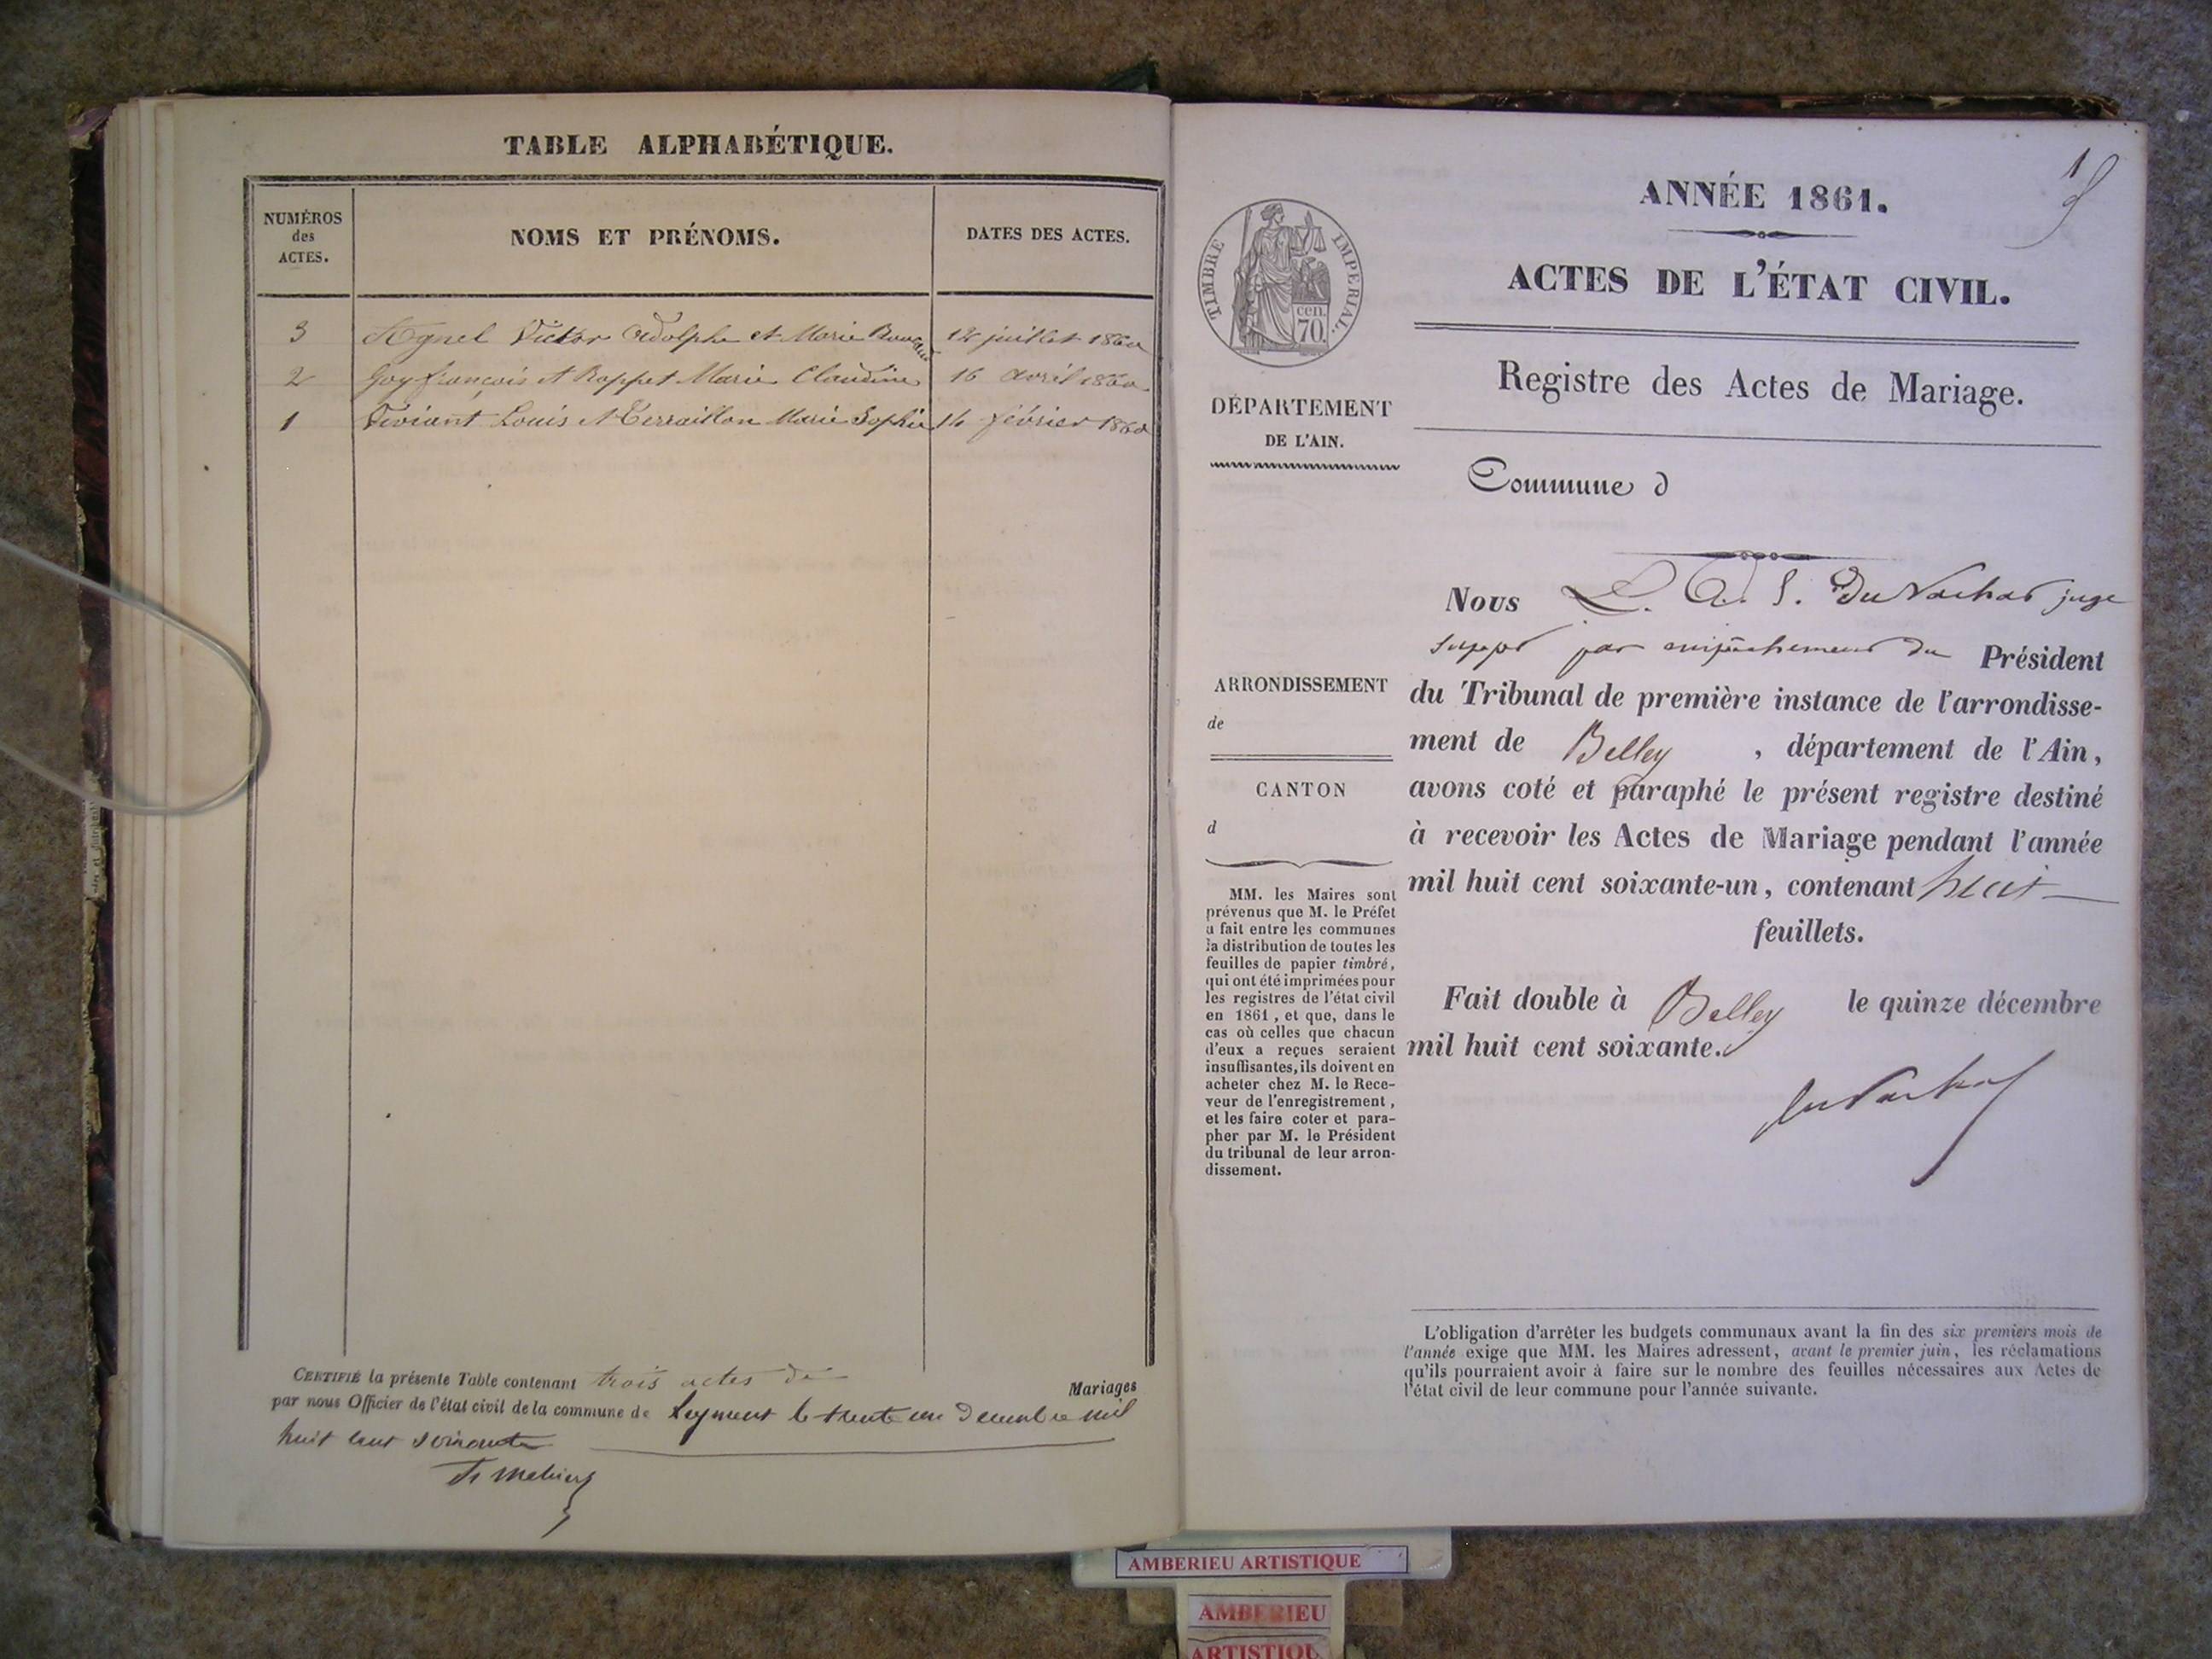 TABLE ALPHABÉTIQUE.
NUMÉROS
des
ACTES.
NOMS ET PRÉNOMS.
DATES DES ACTES.
3 Agnel Victor Adolphe et Marie juillet 1860
2 Goy françois et Roppet Marie Claudine 16 avril 1860
1 Viviant Louis et Terraillon Marie Sophie 14 février 1860
CERTIFIÉ la présente Table contenant trois actes de
Mariages
par nous Officier de l'état civil de la commune de Leyment le trente un decembre mil
huit cent soixante
AMBERIEU ARTISTIQUE
AMBERIEU
ARTISTIQU
1
ANNÉE 1861.
ACTES DE L'ÉTAT CIVIL.
Registre des Actes de Mariage.
TIMBRE IMPÉRIAL.
cen.
70.
DÉPARTEMENT
DE L'AIN.
Commune d
ARRONDISSEMENT
de
CANTON
d
MM. les Maires sont
prévenus que M. le Préfet
a fait entre les communes
la distribution de toutes les
feuilles de papier timbré,
qui ont été imprimées pour
les registres de l'état civil
en 1861, et que, dans le
cas où celles que chacun
d'eux a reçues seraient
insuffisantes, ils doivent en
acheter chez M. le Rece-
veur de l'enregistrement,
et les faire coter et para-
pher par M. le Président
du tribunal de leur arron-
dissement.
Nous juge
par empêchement du Président
du Tribunal de première instance de l'arrondisse-
ment de Belley , département de l'Ain,
avons coté et paraphé le présent registre destiné
à recevoir les Actes de Mariage pendant l'année
mil huit cent soixante-un, contenant huit
feuillets.
Fait double à Belley le quinze décembre
mil huit cent soixante.
L'obligation d'arrêter les budgets communaux avant la fin des six premiers mois de
l'année exige que MM. les Maires adressent, avant le premier juin, les réclamations
qu'ils pourraient avoir à faire sur le nombre des feuilles nécessaires aux Actes de
l'état civil de leur commune pour l'année suivante.